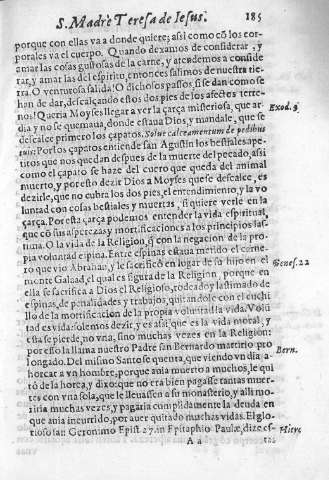 S. Madre Teresa de Iesus. 185
porque con ellas va a donde quiere; assi como cõ los cor-
porales va el cuerpo. Quando dexamos de considerar, y
amar las cosas gustosas de la carne, y atendemos a conside
rar, y amar las del espiritu, entonces salimos de nuestra tie-
rra. O venturosa salida! O dichosos passos, si se dan como se
han de dar, descalçando estos dos pies de los afectos terre-
nos! Queria Moyses llegar a ver la çarça misteriosa, que ar Exod. 3
dia y no se quemaua, donde estaua Dios, y mandale, que se
descalce primero los çapatos. Solue calceamentum de pedibus
tuis: Por los çapatos entiende san Agustin los bestiales ape-
titos que nos quedan despues de la muerte del pecado, assi
como el çapato se haze del cuero que queda del animal
muerto, y por esto dezir Dios a Moyses que se descalce, es
dezirle, que no cubra los dos pies, el entendimiento, y la vo
luntad con cosas bestiales y muertas, si quiere verle en la
çarça. Por esta çarça podemos entender la vida espiritual,
que cõ sus asperezas y mortificaciones a los principios las-
tima. O la vida de la Religion, q̃ con la negacion de la pro
pia voluntad espina. Entre espinas estaua metido el carne-
ro que vio Abrahan, y le sacrificò en lugar de su hijo en el Genes. 22
monte Galaad, el qual es figura de la Religion, porque en
ella se sacrifica a Dios el Religioso, rodeado y lastimado de
espinas, de penalidades y trabajos, quitandole con el cuchi
llo de la mortificacion de la propia volũtad la vida. Volũ
tad es vida solemos dezir, y es assi, que es la vida moral, y
esta se pierde, no vna, sino muchas vezes en la Religion:
por esso la llama nuestro Padre san Bernardo martirio pro Bern.
longado. Del mismo Santo se quenta, que viendo vn dia a
horcar a vn hombre, porque auia muerto a muchos, le qui
tò de la horca, y dixo: que no era bien pagasse tantas muer
tes con vna sola, que le lleuassen a su monasterio, y alli mo
riria muchas vezes, y pagaria cumplidamente la deuda en
que auia incurrido, por auer quitado muchas vidas. El glo-
rioso san Geronimo Epist. 27. in Epitaphio Paulæ, dize es- Hiero.
A a tas